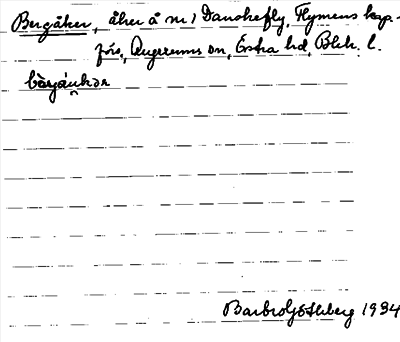 Bergåker, åker å nr 1 Danskefly, Flymens kap.-
förs., Augerums sn, Östra hd, Blek. l.
bæ̀rjáukər
Barbro Göthberg 1934